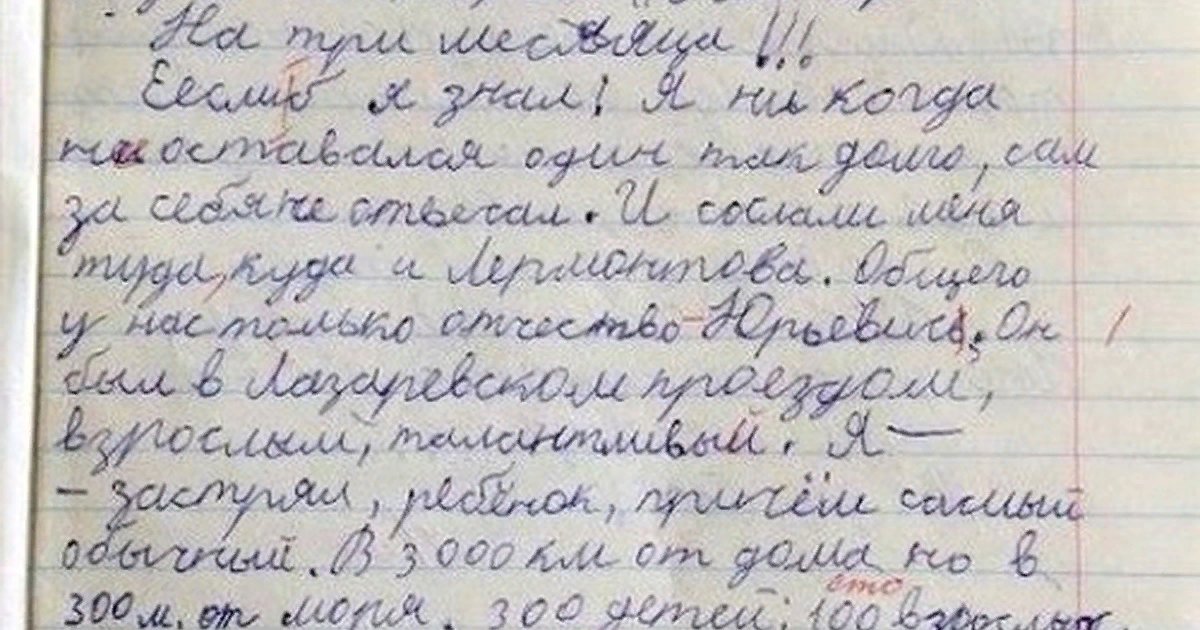 На три месяца!!!
Ееслиб я знал! Я ни когда
не оставался один так долго, сам
за себя не отвечал. И сослали меня
туда, куда и Лермонтова. Общего
у нас только отчество - Юрьевич. Он
был в Лазаревском проездом,
взрослым, талантливый. Я —
- застрял, ребёнок, причём самый
обычный. В 3000 км от дома но в
сто
300 м. от моря. 300 детей; 100 взрослых.